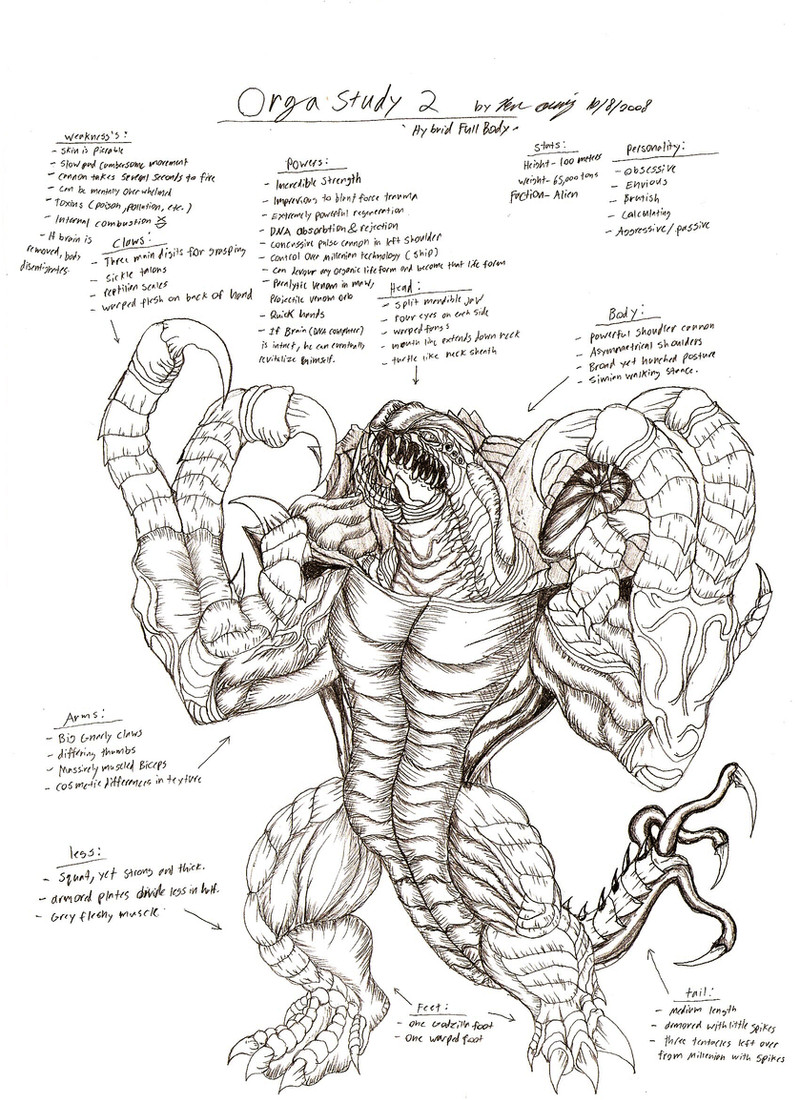 Orga Study 2 by 10/8/2008
Hybrid Full Body
Weakness's:
- Skin is pierable
- Slow and cumbersome movement
- cannon takes several seconds to fire
- can be mentally over whelmed
- Toxins (Poison, pollution, etc.)
- Internal combustion
- If brain is
removed, body
disentigrates.
Claws:
- Three main digits for grasping
- Sickle talons
- reptilian scales
- warped flesh on back of hand
Powers:
- Incredible Strength
- Impervious to blunt force trauma
- Extremely powerful regeneration
- DNA absorbtion & rejection
- Concussive pulse cannon in left shoulder
- Control over millenian technology (ship)
- Can devour any organic life form and become that life form
- Paralytic venom in maw,
Projectile venom orb
- Quick hands
- If Brain (DNA computer)
is intact, he can eventually
revitalize himself.
Head:
- Split mandible jaw
- four eyes on each side
- warped fangs
- mouth line extends down neck
- turtle like neck sheath
Stats:
Height - 100 meters
Weight - 65,000 tons
Faction - Alien
Personality:
- Obsessive
- Envious
- Brutish
- Calculating
- Aggressive/passive
Body:
- Powerful shoulder cannon
- Asymmetrical shoulders
- Broad yet hunched posture
- Simian walking stance.
Arms:
- Big Gnarly claws
- differing thumbs
- Massively muscled Biceps
- cosmetic differences in texture
legs:
- Squat, yet strong and thick.
- armored plates divide legs in half.
- Grey fleshy muscle
Feet:
- one Godzilla foot
- one warped foot
tail:
- Medium length
- armored with little spikes
- three tentacles left over
from Millenian with spikes